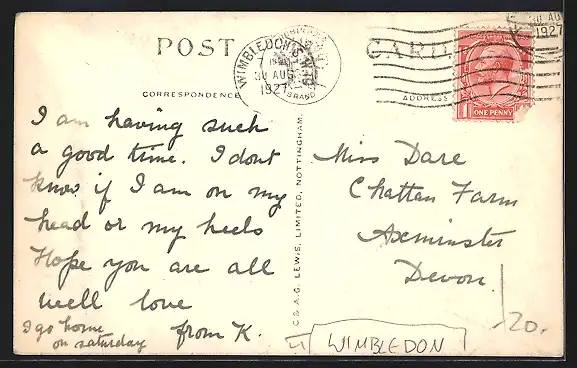 POST CARD
CORRESPONDENCE
ADDRESS
WIMBLEDON S.W.19
30 AUG
1927
30 AUG
1927
ONE PENNY
I am having such
a good time. I dont
know if I am on my
head or my heels
Hope you are all
well love
from K.
I go home
on saturday
C. & A. G. LEWIS, LIMITED, NOTTINGHAM.
BRAND
Miss Dare
Chattan Farm
Axminster
Devon
20.
WIMBLEDON